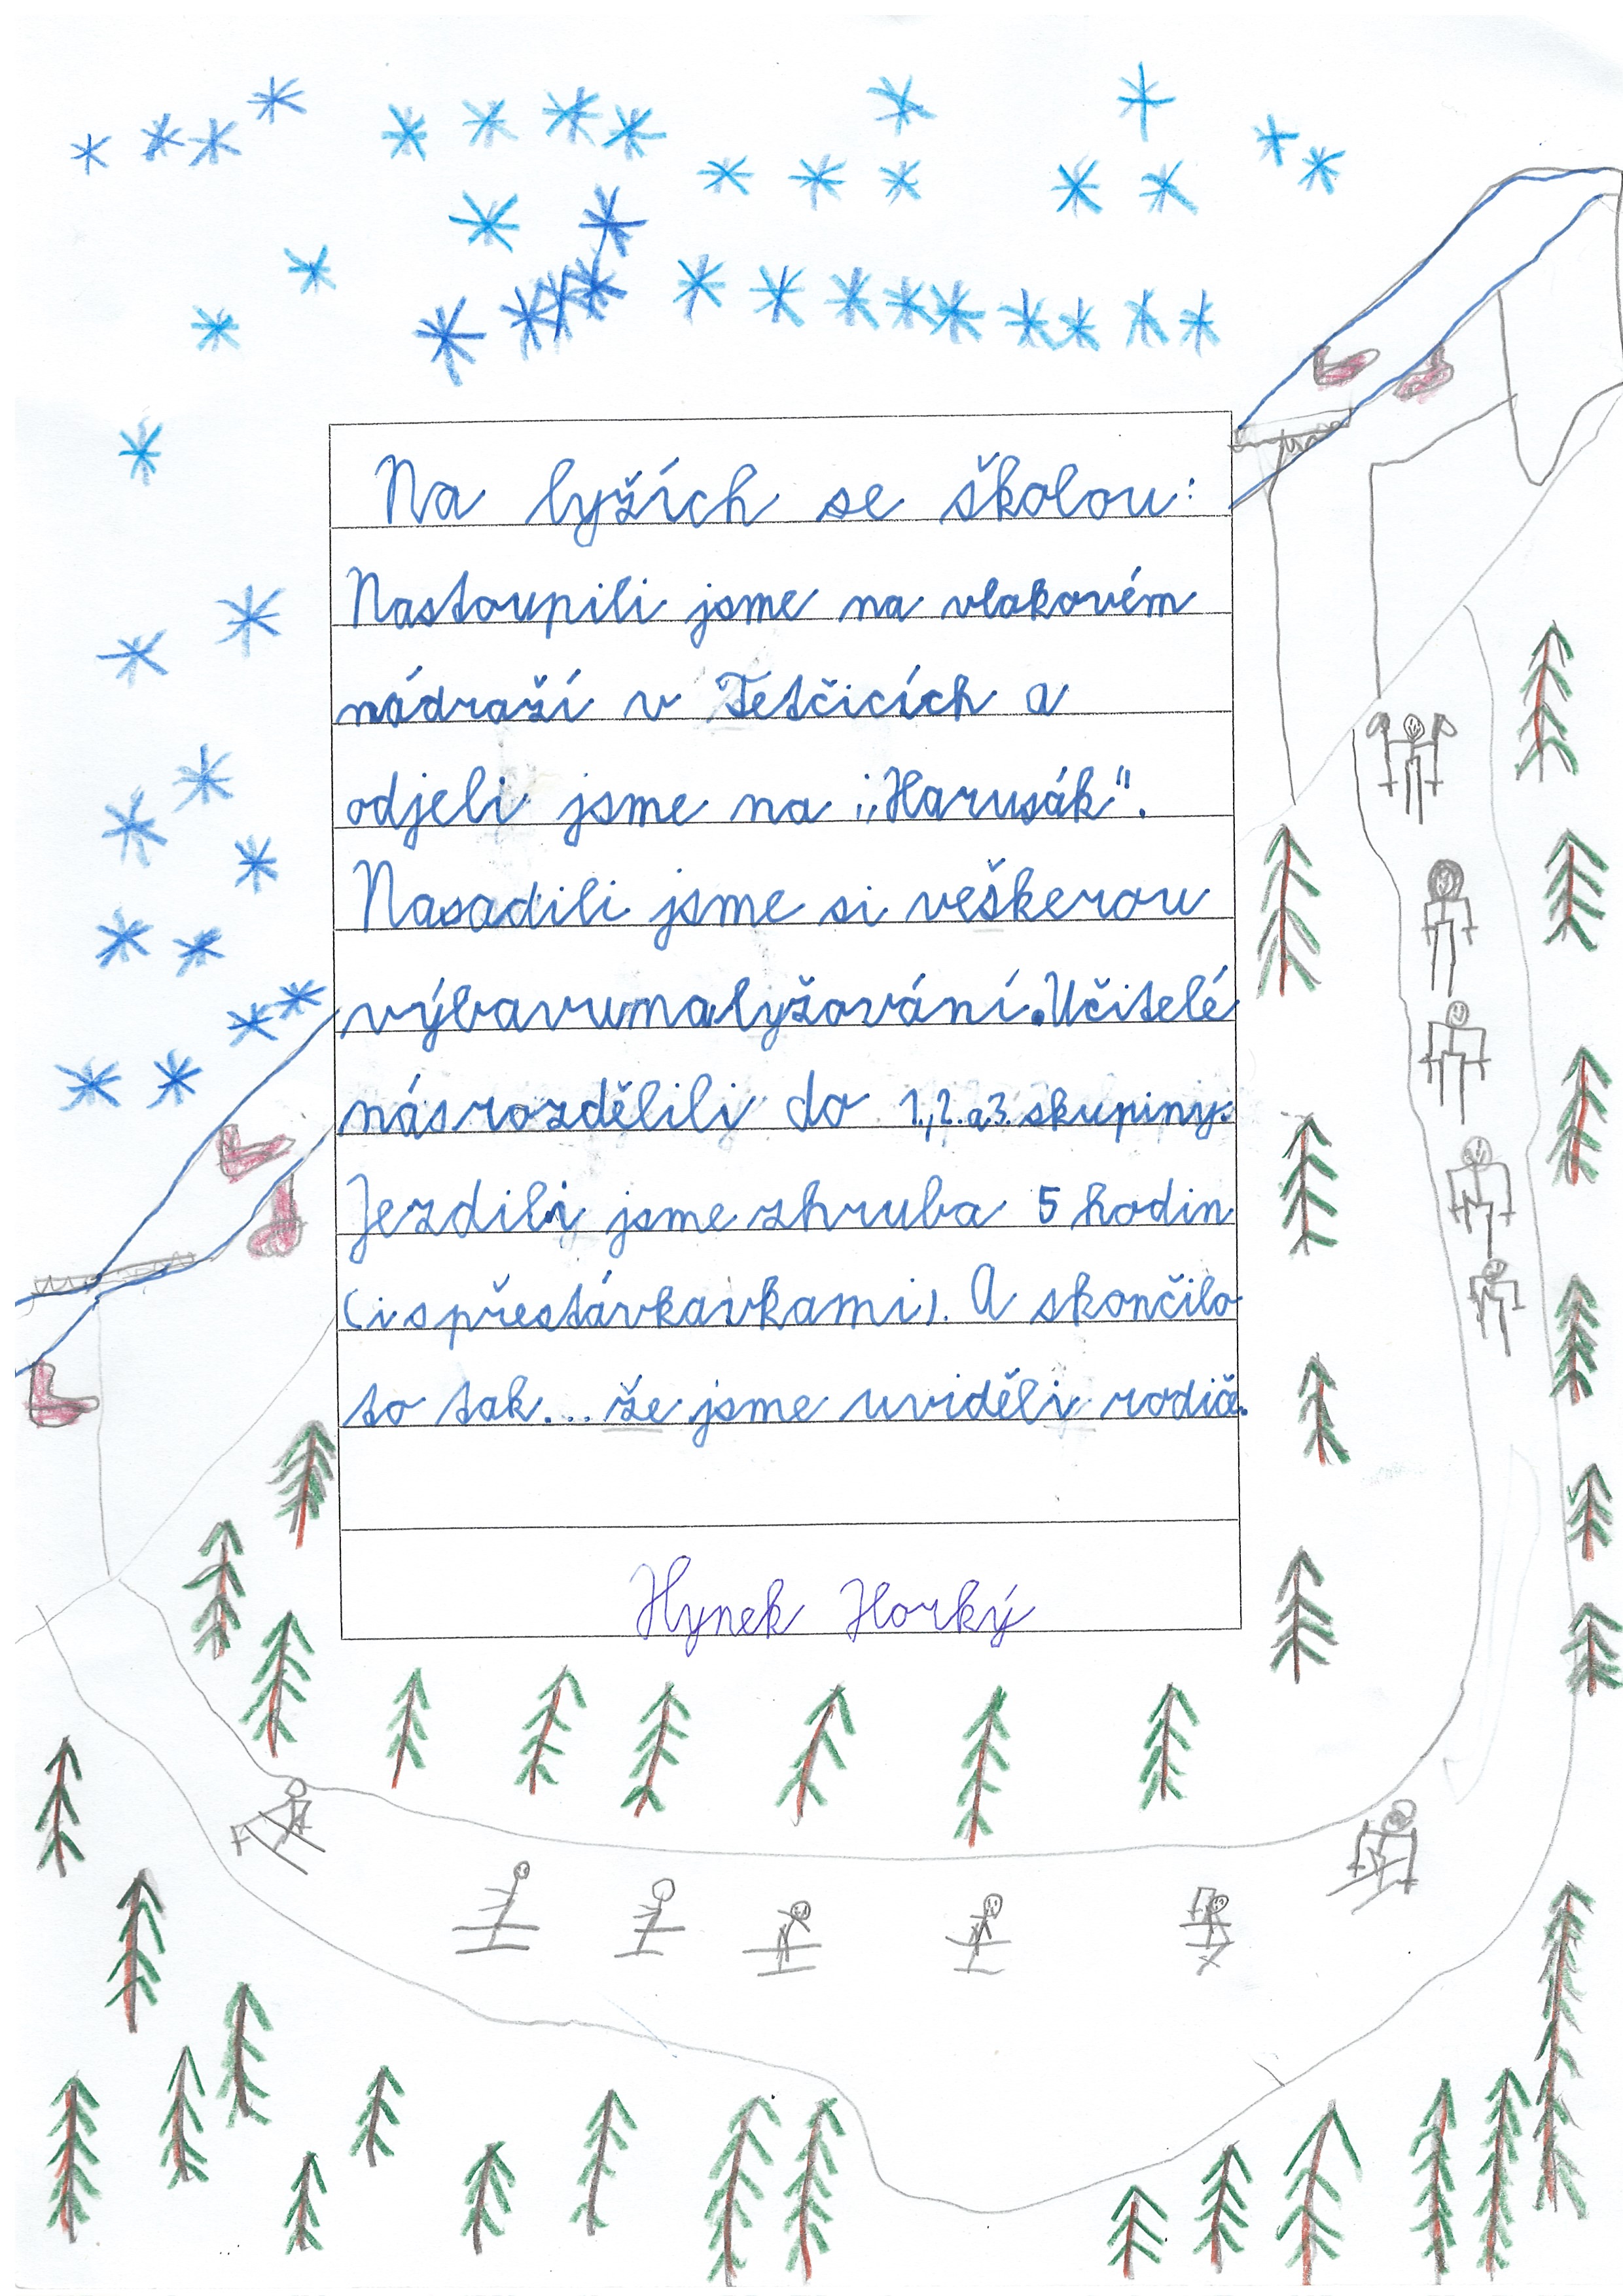 Na lyžích se školou:
Nastoupili jsme na vlakovém
nádraží v Tetčicích a
odjeli jsme na „Harusák".
Nasadili jsme si veškerou
výbavu na lyžování. Učitelé
nás rozdělili do 1., 2. a 3. skupiny.
Jezdili jsme zhruba 5 hodin
(i s přestávkavkami). A skončilo
to tak... že jsme uviděli rodiče.
Hynek Horký